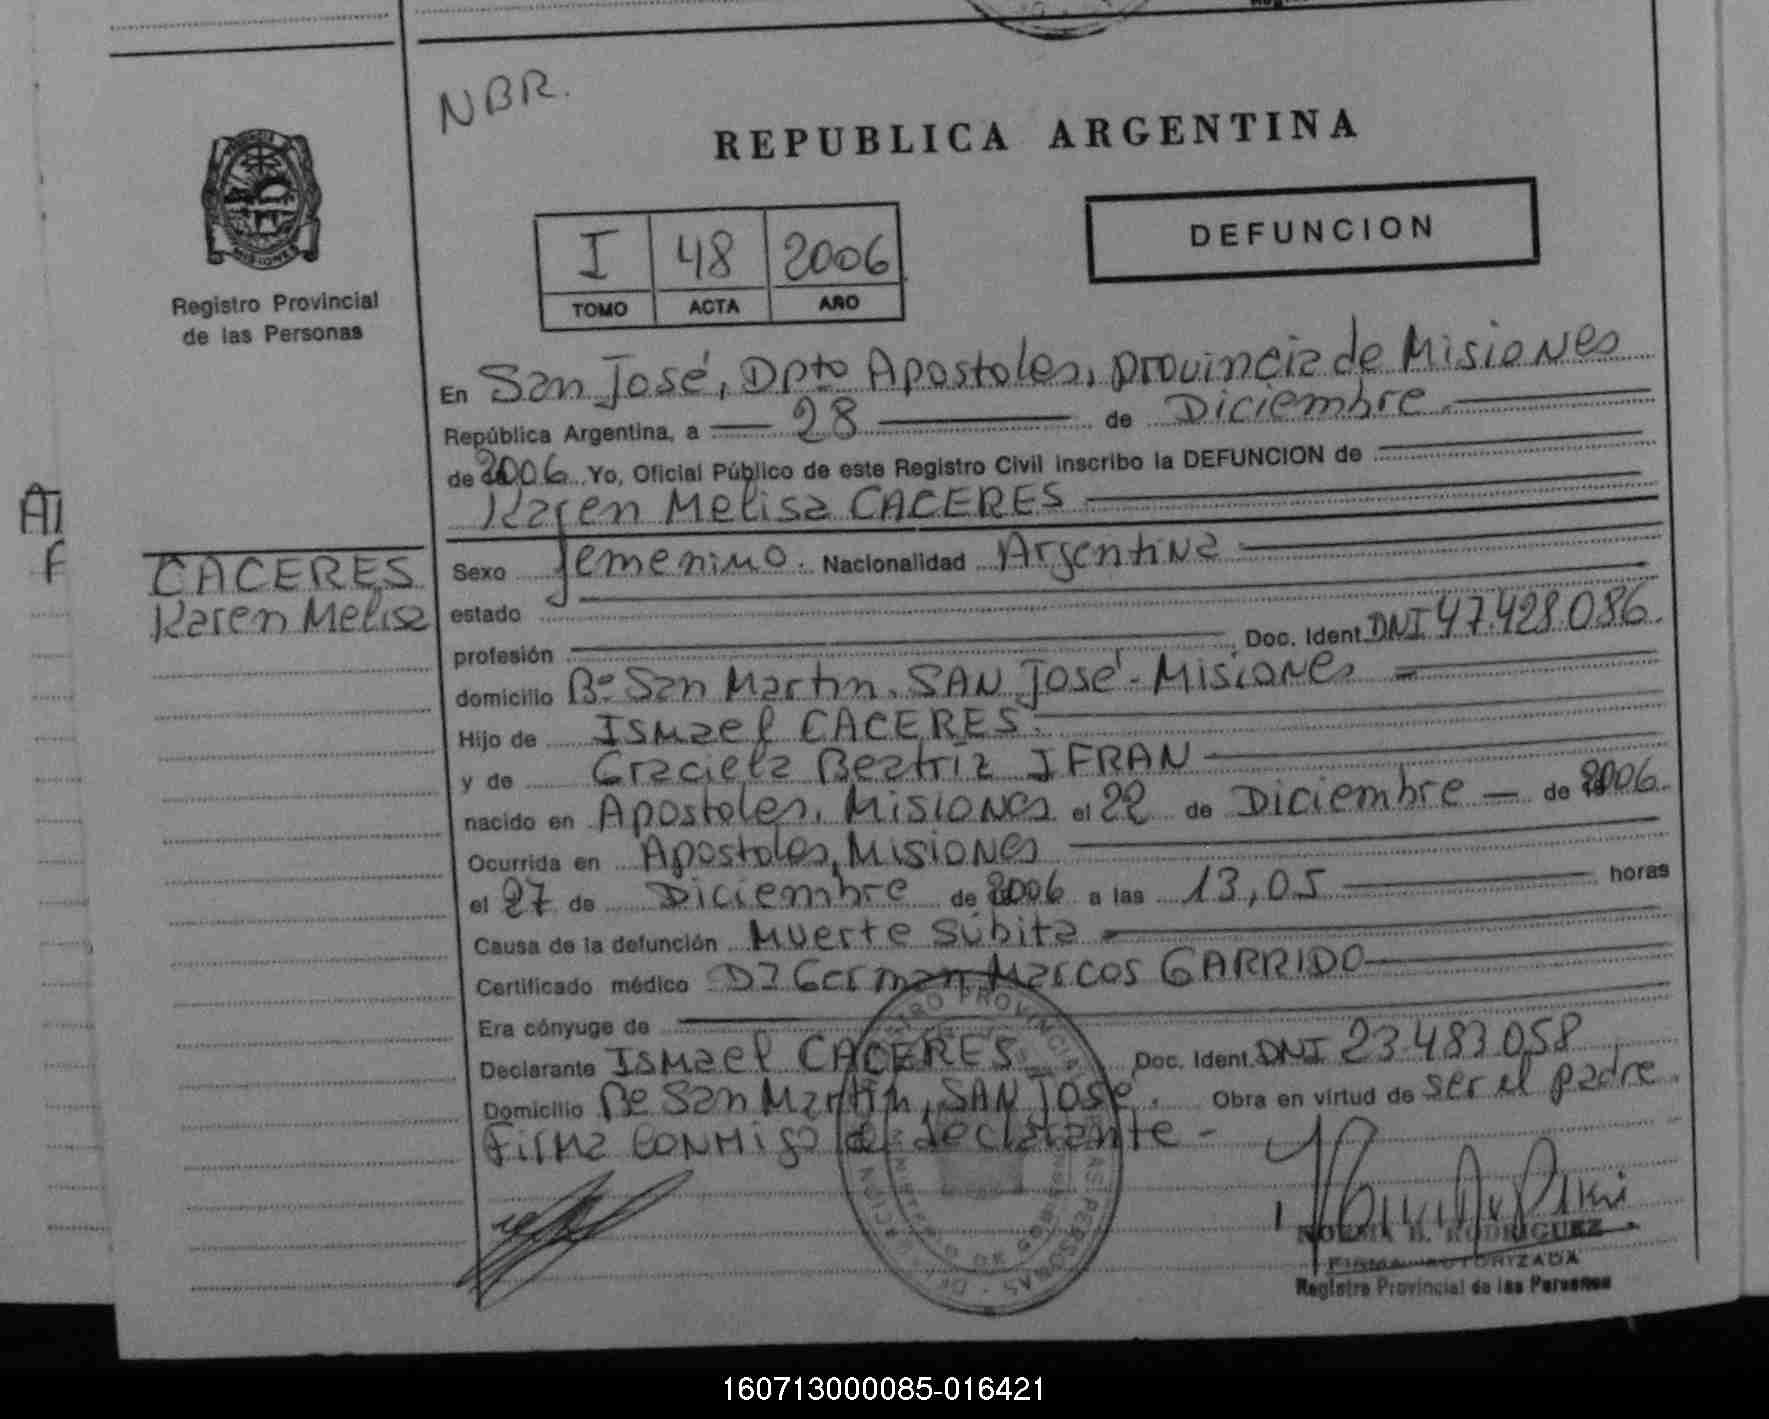 NBR.
REPUBLICA ARGENTINA
DEFUNCION
I 48 2006
TOMO ACTA AÑO
Registro Provincial
de las Personas
En San José, Dpto Apostoles, provincia de Misiones
República Argentina, a 28 de Diciembre
de 2006 Yo, Oficial Público de este Registro Civil inscribo la DEFUNCION de
Karen Melisa CACERES
CACERES
Karen Melisa
Sexo femenino. Nacionalidad Argentina
estado
profesión Doc. Ident. DNI 47.428.086.
domicilio Bº San Martin. SAN José - Misiones
Hijo de Ismael CACERES.
y de Graciela Beatriz IFRAN
nacido en Apostoles, Misiones el 22 de Diciembre de 2006.
Ocurrida en Apostoles, Misiones
el 27 de Diciembre de 2006 a las 13,05 horas
Causa de la defunción Muerte Súbita
Certificado médico Dr German Marcos GARRIDO
Era cónyuge de
Declarante Ismael CACERES Doc. Ident. DNI 23.483.058
Domicilio Bº San Martin, SAN José. Obra en virtud de ser el padre.
Firma conmigo el declarante -
NORMA B. RODRIGUEZ
FIRMA AUTORIZADA
Registro Provincial de las Personas
160713000085-016421